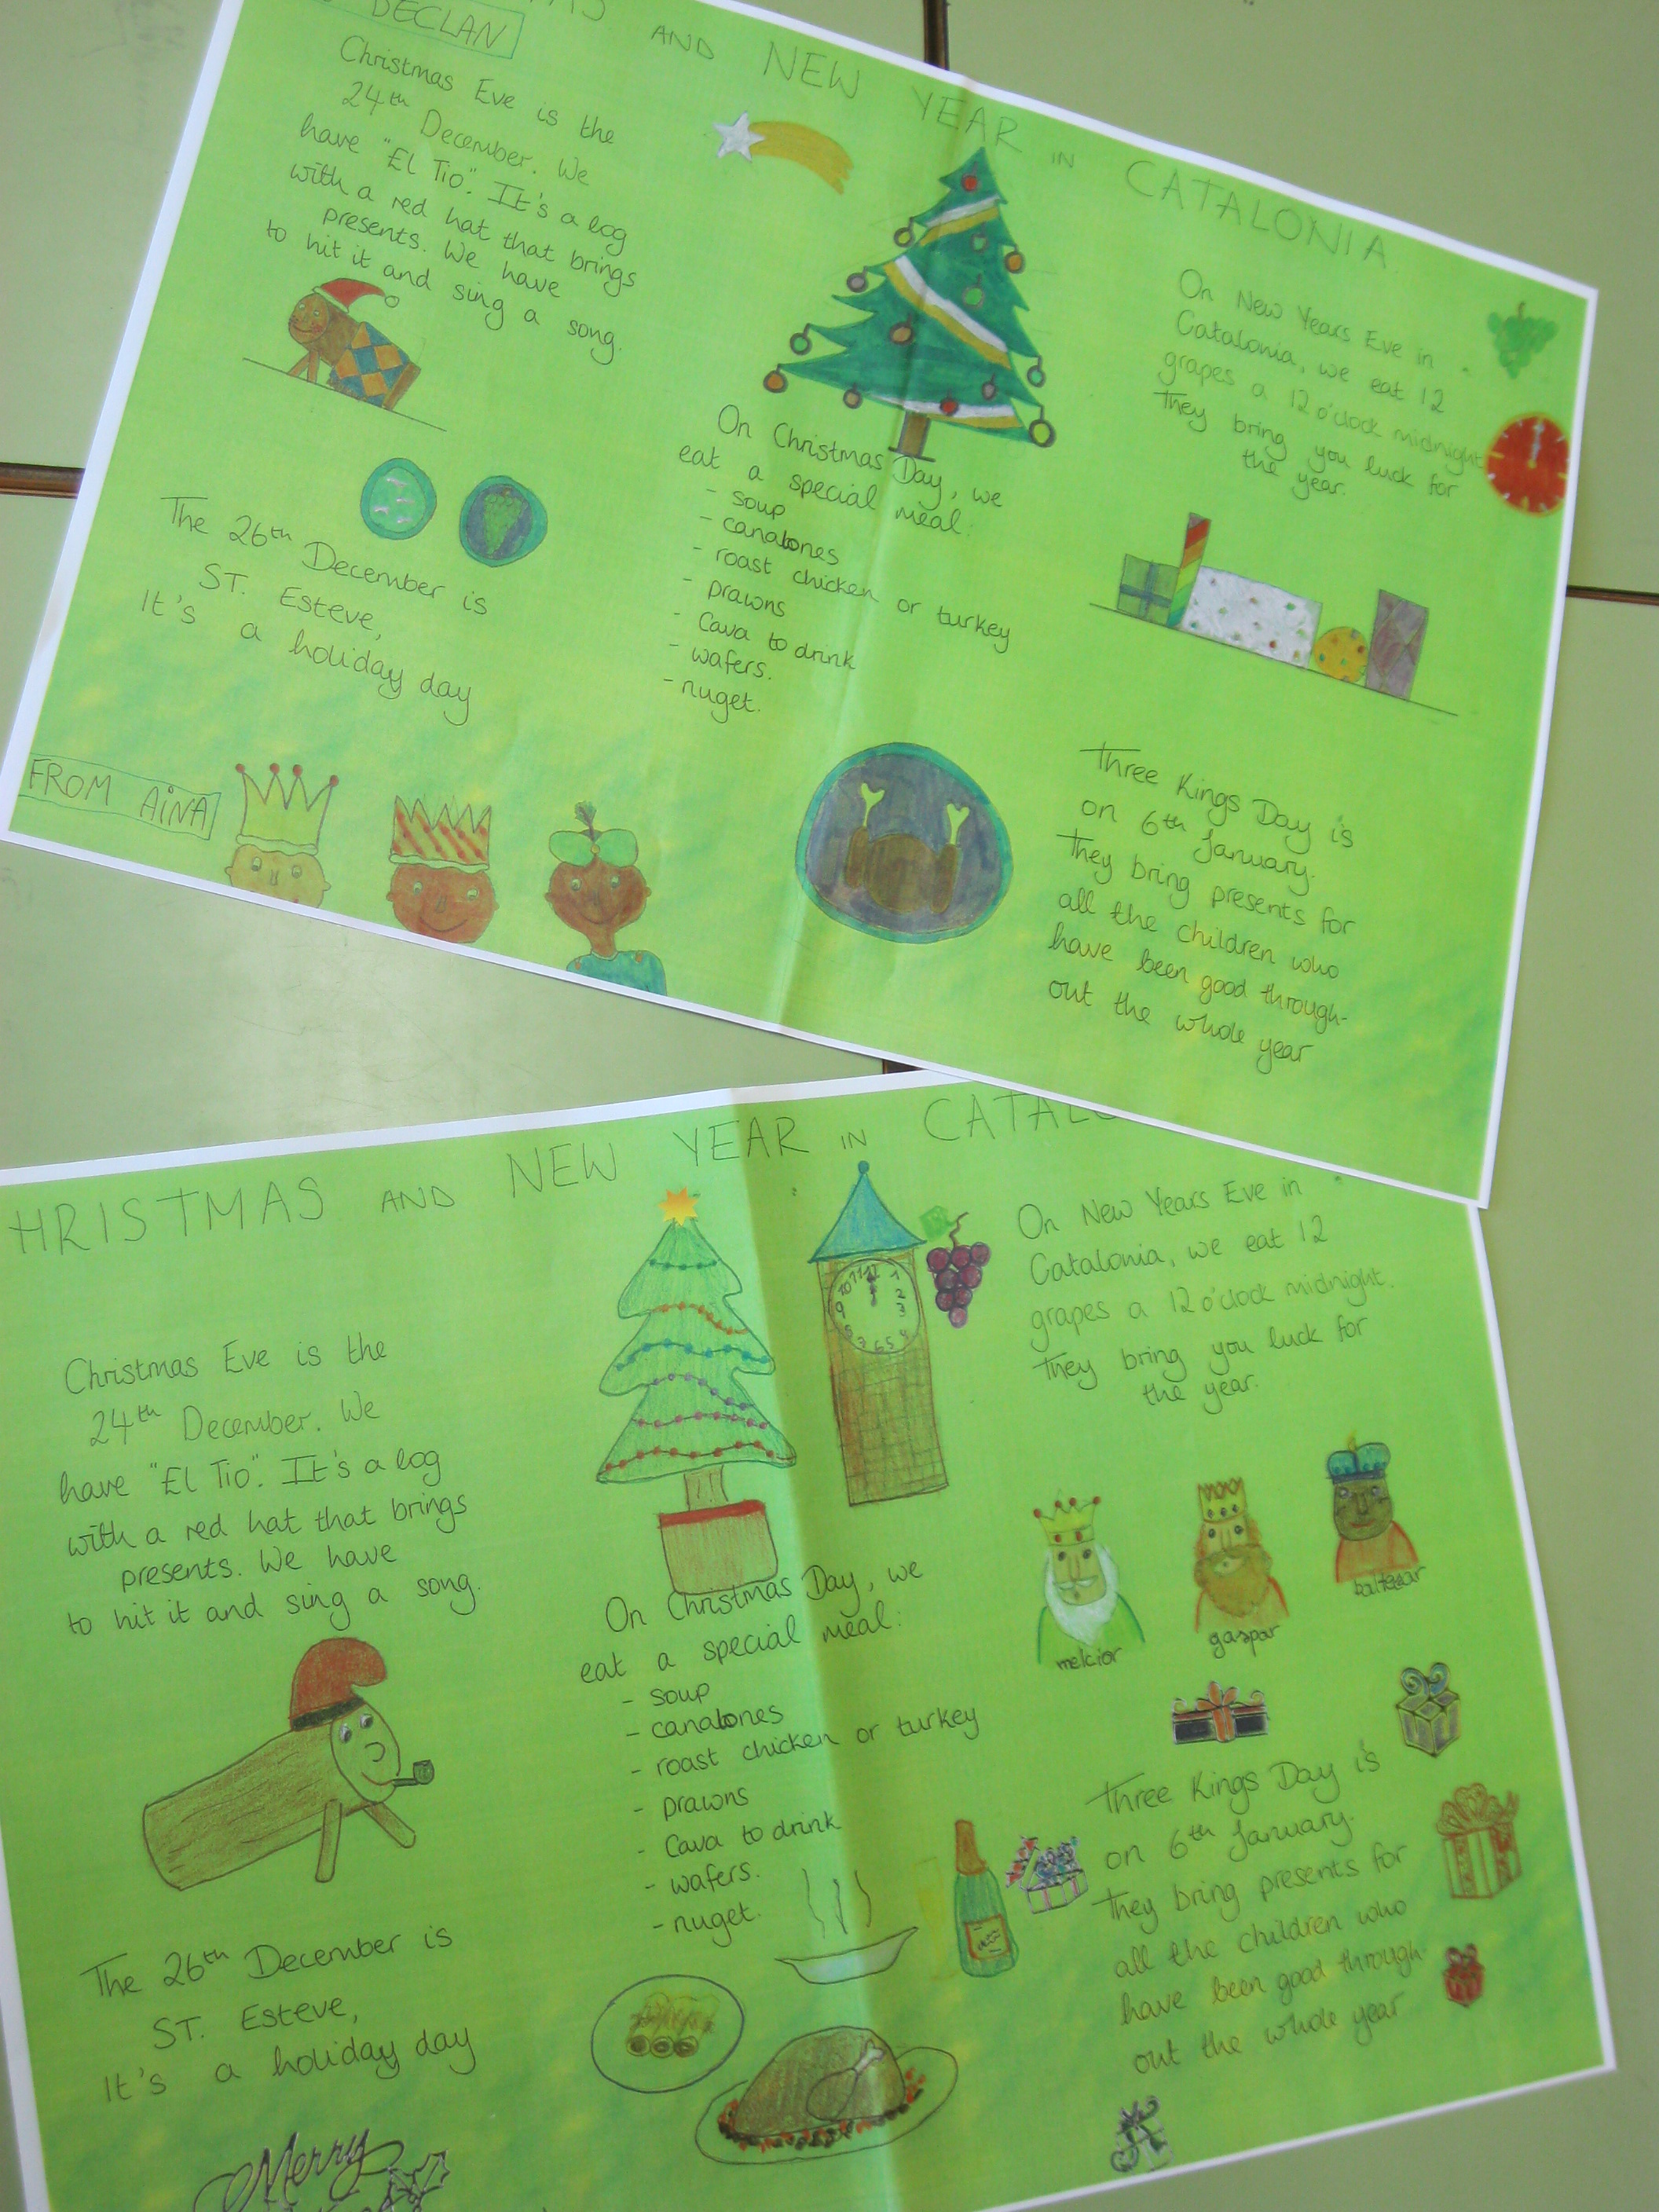 DECLAN
AND NEW YEAR IN CATALONIA
Christmas Eve is the
24th December. We
have "El Tio". It's a log
with a red hat that brings
presents. We have
to hit it and sing a song.
The 26th December is
ST. Esteve,
It's a holiday day
FROM AiNA
On Christmas Day, we
eat a special meal:
- soup
- canalones
- roast chicken or turkey
- prawns
- Cava to drink
- wafers.
- nuget.
On New Years Eve in
Catalonia, we eat 12
grapes a 12 o'clock midnight
They bring you luck for
the year.
Three Kings Day is
on 6th January.
They bring presents for
all the children who
have been good through-
out the whole year
HRISTMAS AND NEW YEAR IN CATAL
Christmas Eve is the
24th December. We
have "El Tio". It's a log
with a red hat that brings
presents. We have
to hit it and sing a song.
The 26th December is
ST. Esteve,
It's a holiday day
Merry
On Christmas Day, we
eat a special meal:
- soup
- canalones
- roast chicken or turkey
- prawns
- Cava to drink
- wafers.
- nuget.
10 11 12 1
9 2
3
8 4
7 6 5
On New Years Eve in
Catalonia, we eat 12
grapes a 12 o'clock midnight.
They bring you luck for
the year.
melcior
gaspar
baltasar
Three Kings Day is
on 6th January.
They bring presents for
all the children who
have been good through-
out the whole year